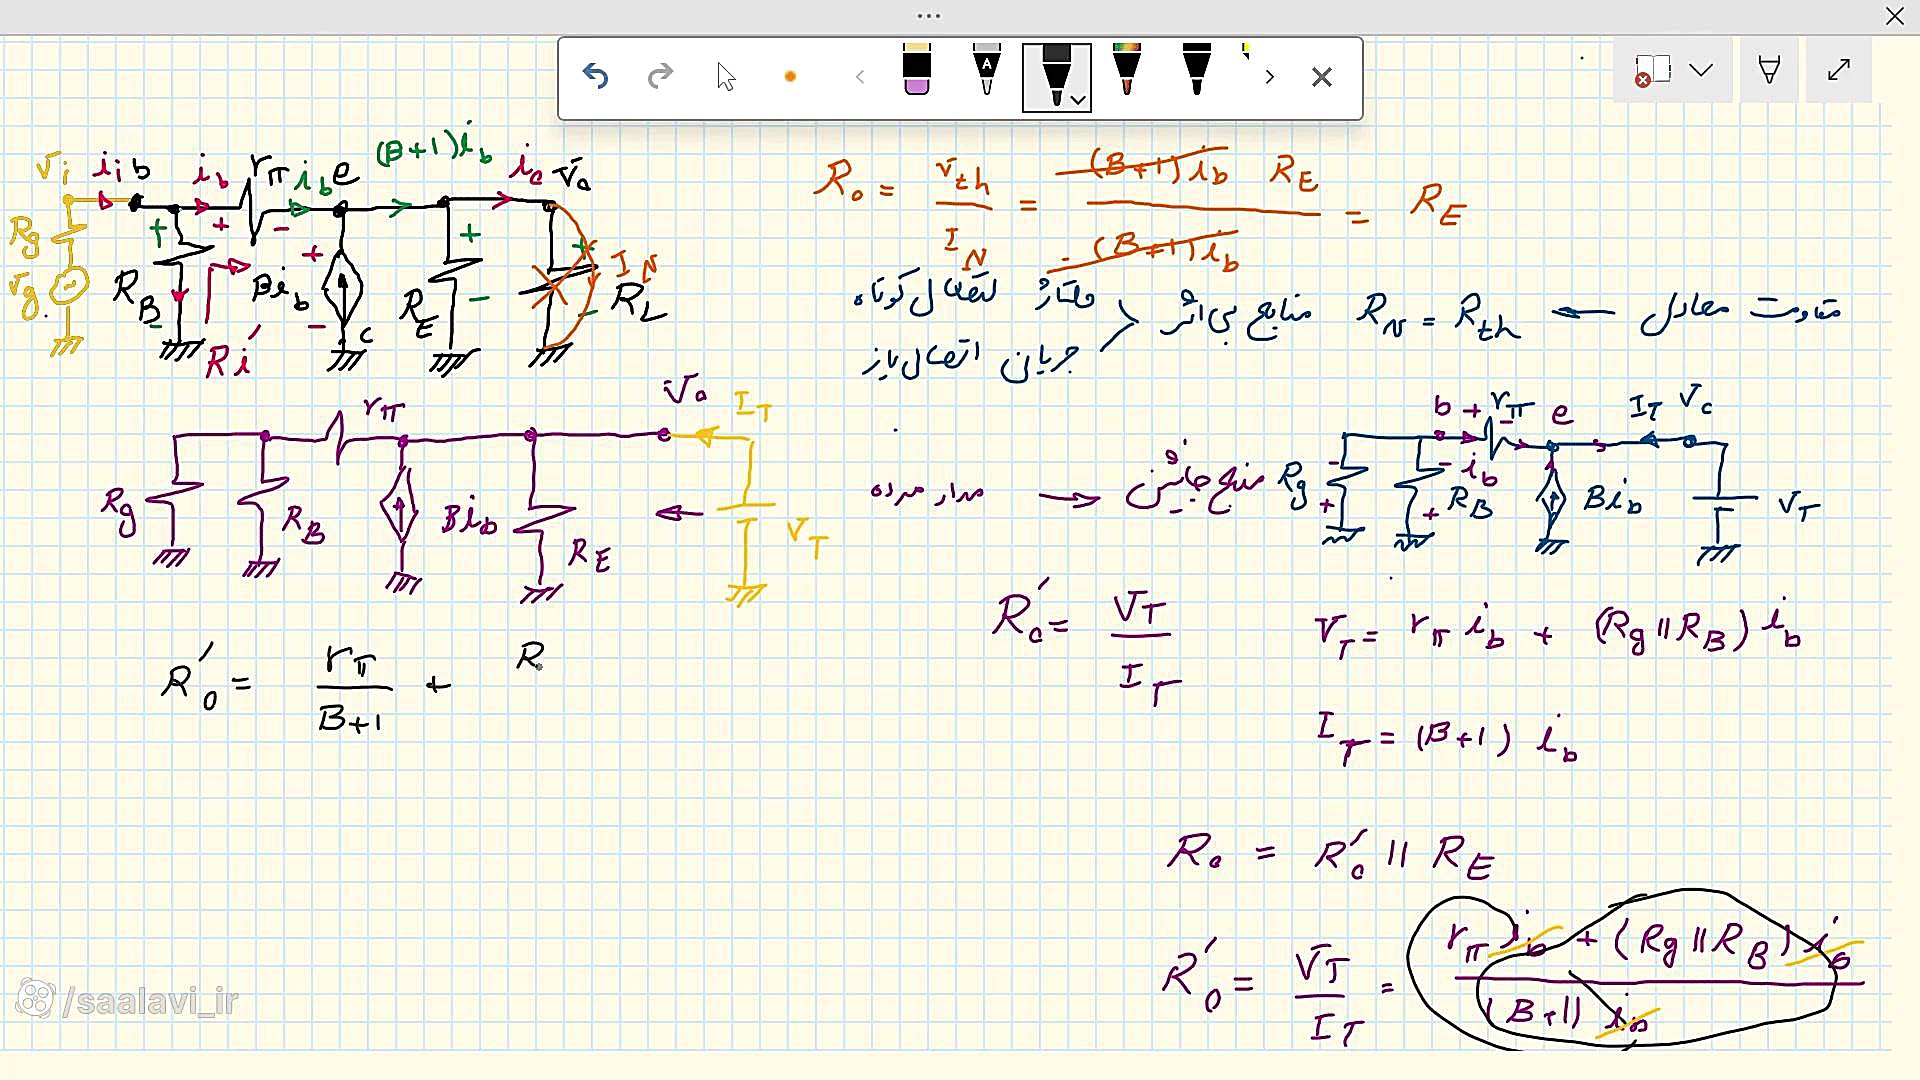 Vi ii b ib rπ ib e (B+1)ib io Vo
Rg Vg RB Ri' Bib c RE IN RL
Ro = Vth / IN = (B+1)ib RE / (B+1)ib = RE
مقاومت معادل ← RN = Rth منابع بی اثر ولتاژ اتصال کوتاه
جریان اتصال باز
rπ Vo IT
Rg RB Bib RE VT
مدار مرده → منبع جانشین
b + rπ - e IT Vo
Rg RB ib Bib VT
Ro' = VT / IT
VT = rπ ib + (Rg || RB) ib
IT = (B+1) ib
Ro' = rπ / B+1 + R
Ro = Ro' || RE
Ro' = VT / IT = rπ ib + (Rg || RB) ib / (B+1) ib
/saalavi_ir
A